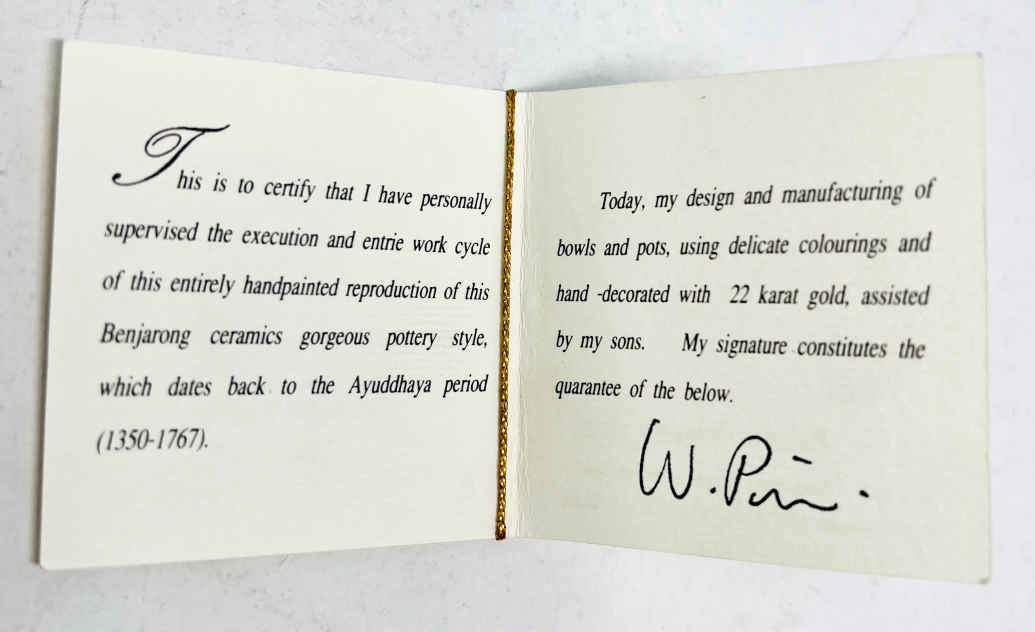 This is to certify that I have personally
supervised the execution and entrie work cycle
of this entirely handpainted reproduction of this
Benjarong ceramics gorgeous pottery style,
which dates back to the Ayuddhaya period
(1350-1767).
Today, my design and manufacturing of
bowls and pots, using delicate colourings and
hand -decorated with 22 karat gold, assisted
by my sons. My signature constitutes the
quarantee of the below.
W. Pin.